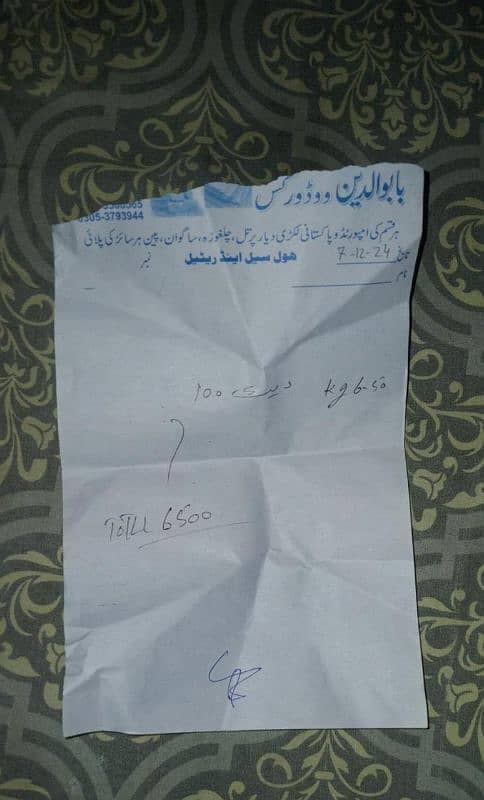 بابوالدین ووڈ ورکس
0305-3793944
ہر قسم کی امپورٹڈ و پاکستانی لکڑی دیار پرتل، چلغوزہ، ساگوان، پین ہر سائز کی پلائی
ھول سیل اینڈ ریٹیل
نمبر
تاریخ 7-12-24
نام
kg 6-50 دیری 100
Total 6500